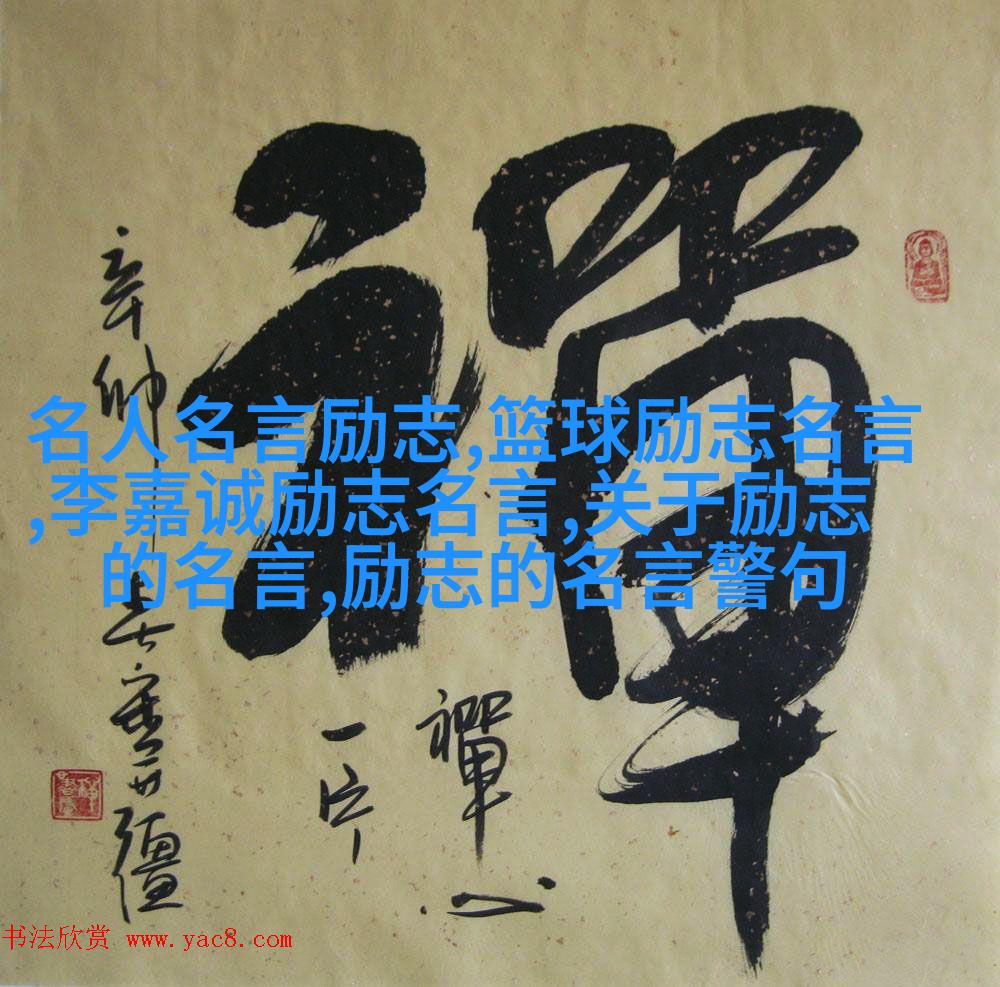 禪
禪心
一片
名人名言励志,篮球励志名言
,李嘉诚励志名言,关于励志
的名言,励志的名言警句
书法欣赏 www.yac8.com